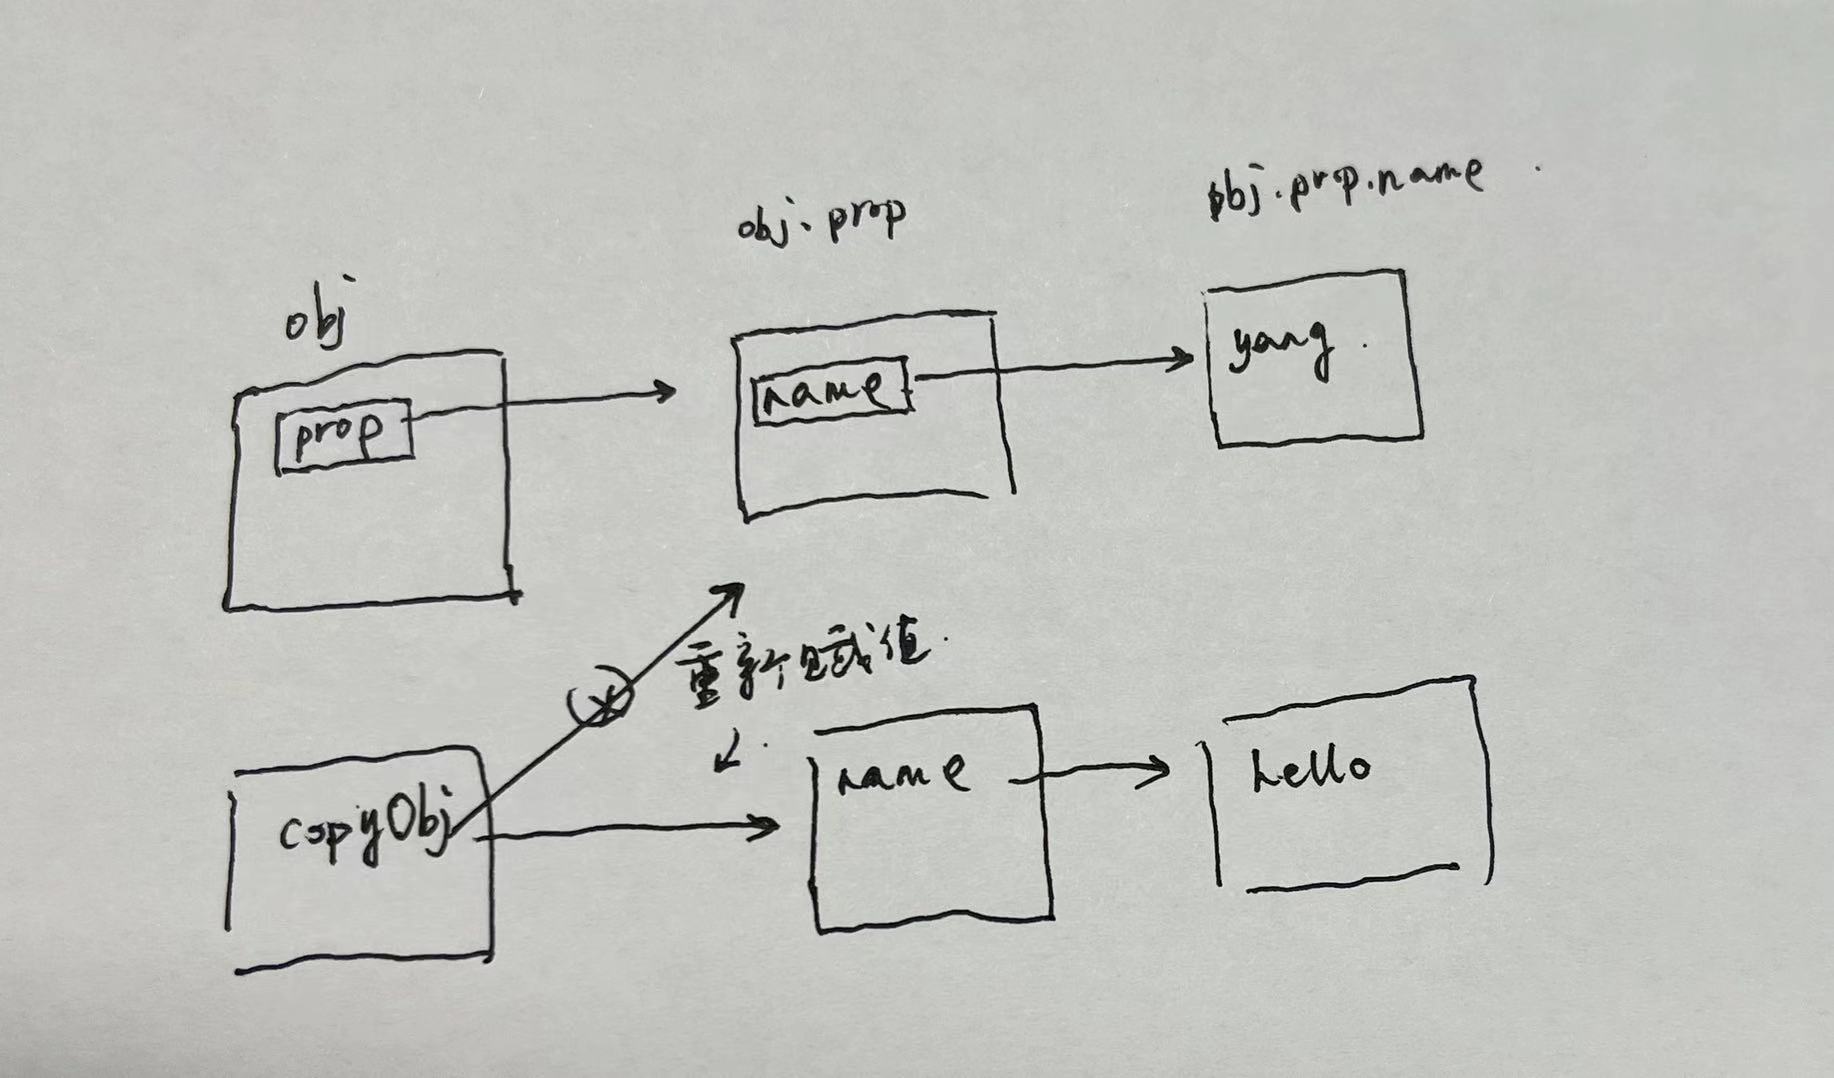 obj.prop.name
obj.prop
obj
prop
name
yang.
重新赋值.
copyObj
name
hello